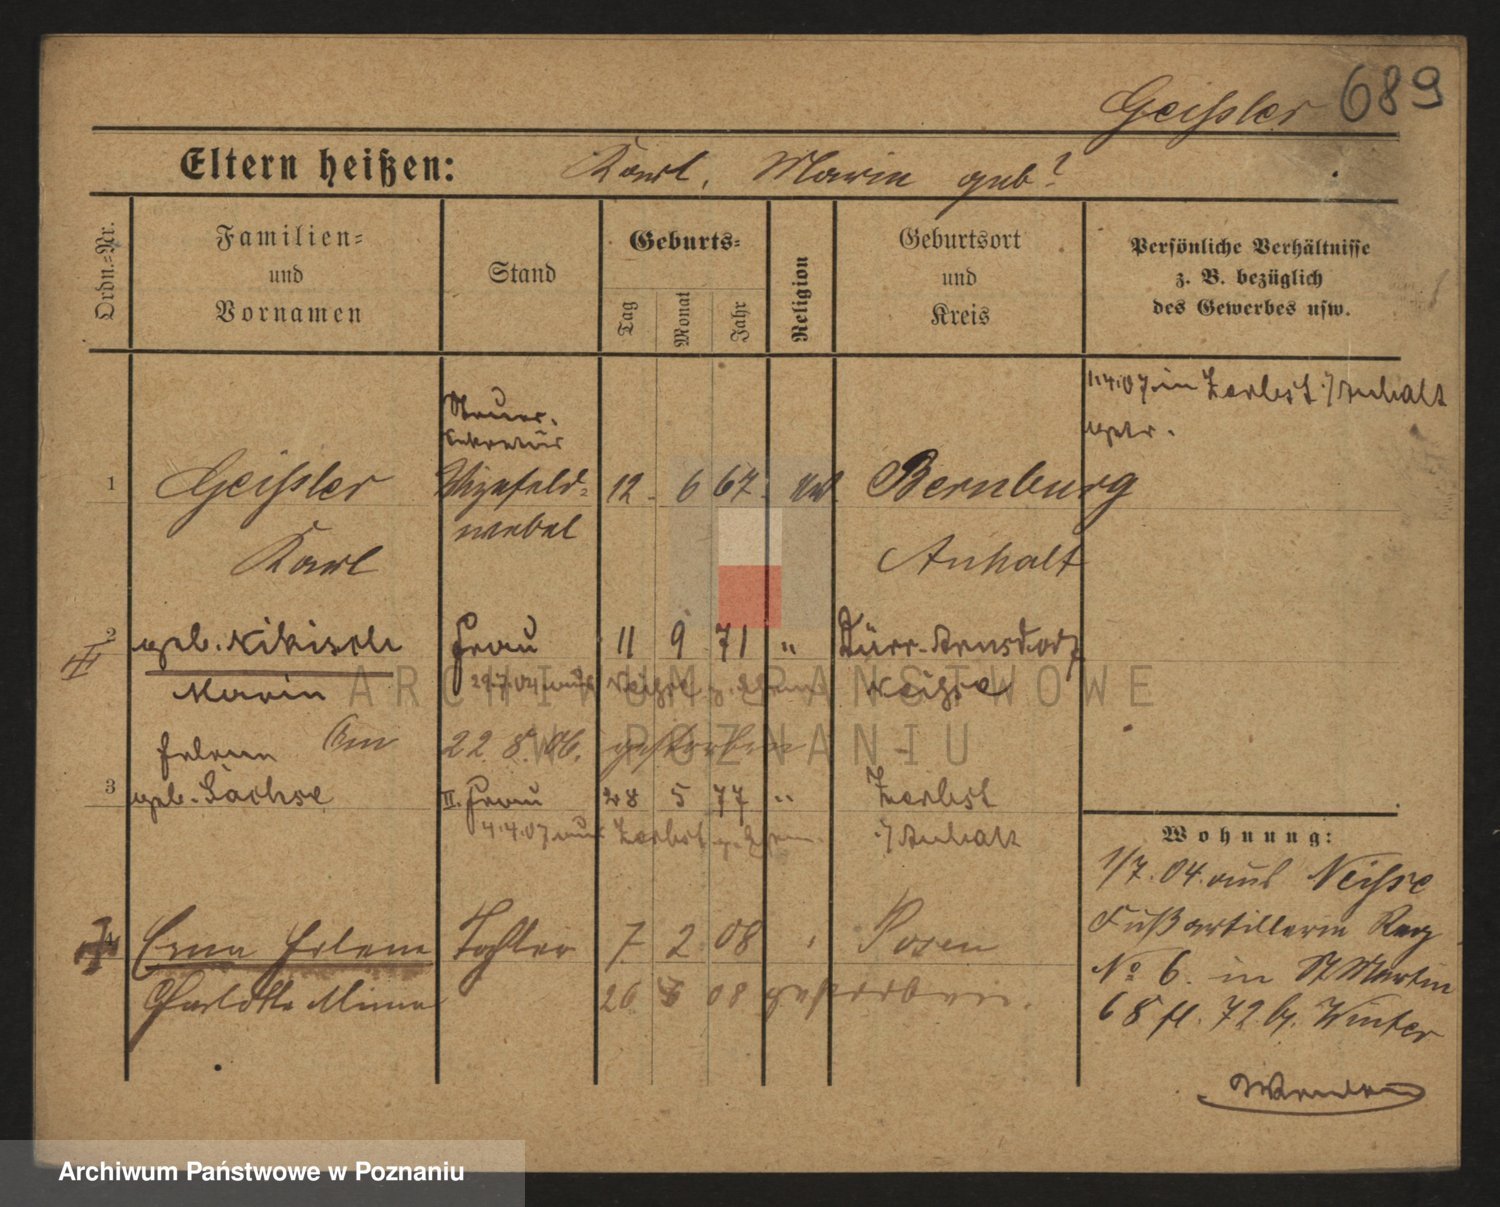 Geißler 689
Eltern heißen: Karl, Marie geb?
Ordn.-Nr.
Familien-
und
Vornamen
Stand
Geburts-
Tag
Monat
Jahr
Religion
Geburtsort
und
Kreis
Persönliche Verhältnisse
z. B. bezüglich
des Gewerbes usw.
1.4.07. in Zerbst i/Anhalt
Steuer-
Sekretär
1 Geißler Vizefeld- 12. 6 67. Bernburg
Karl webel Anhalt
2 geb. Nikisch Frau 11 9 71 " Dürr-Arnsdorf
Marie 29.7.04 aus Neiße z. Ehem. Neiße
Helene Am 22. 8. 06. gestorben
3 geb. Sachse II. Frau 28 5 77 " Zerbst
4.4.07 aus Zerbst z. Ehem. i/Anhalt
Wohnung:
1/7. 04. aus Neiße
Fußartillerie Reg
No 6. in St Martin
68 II. 72 b. Winter
4 Erna Helene Tochter 7 2 08 " Posen
Charlotte Minna 26 08 gestorben.
ARCHIWUM PAŃSTWOWE
W POZNANIU
Archiwum Państwowe w Poznaniu